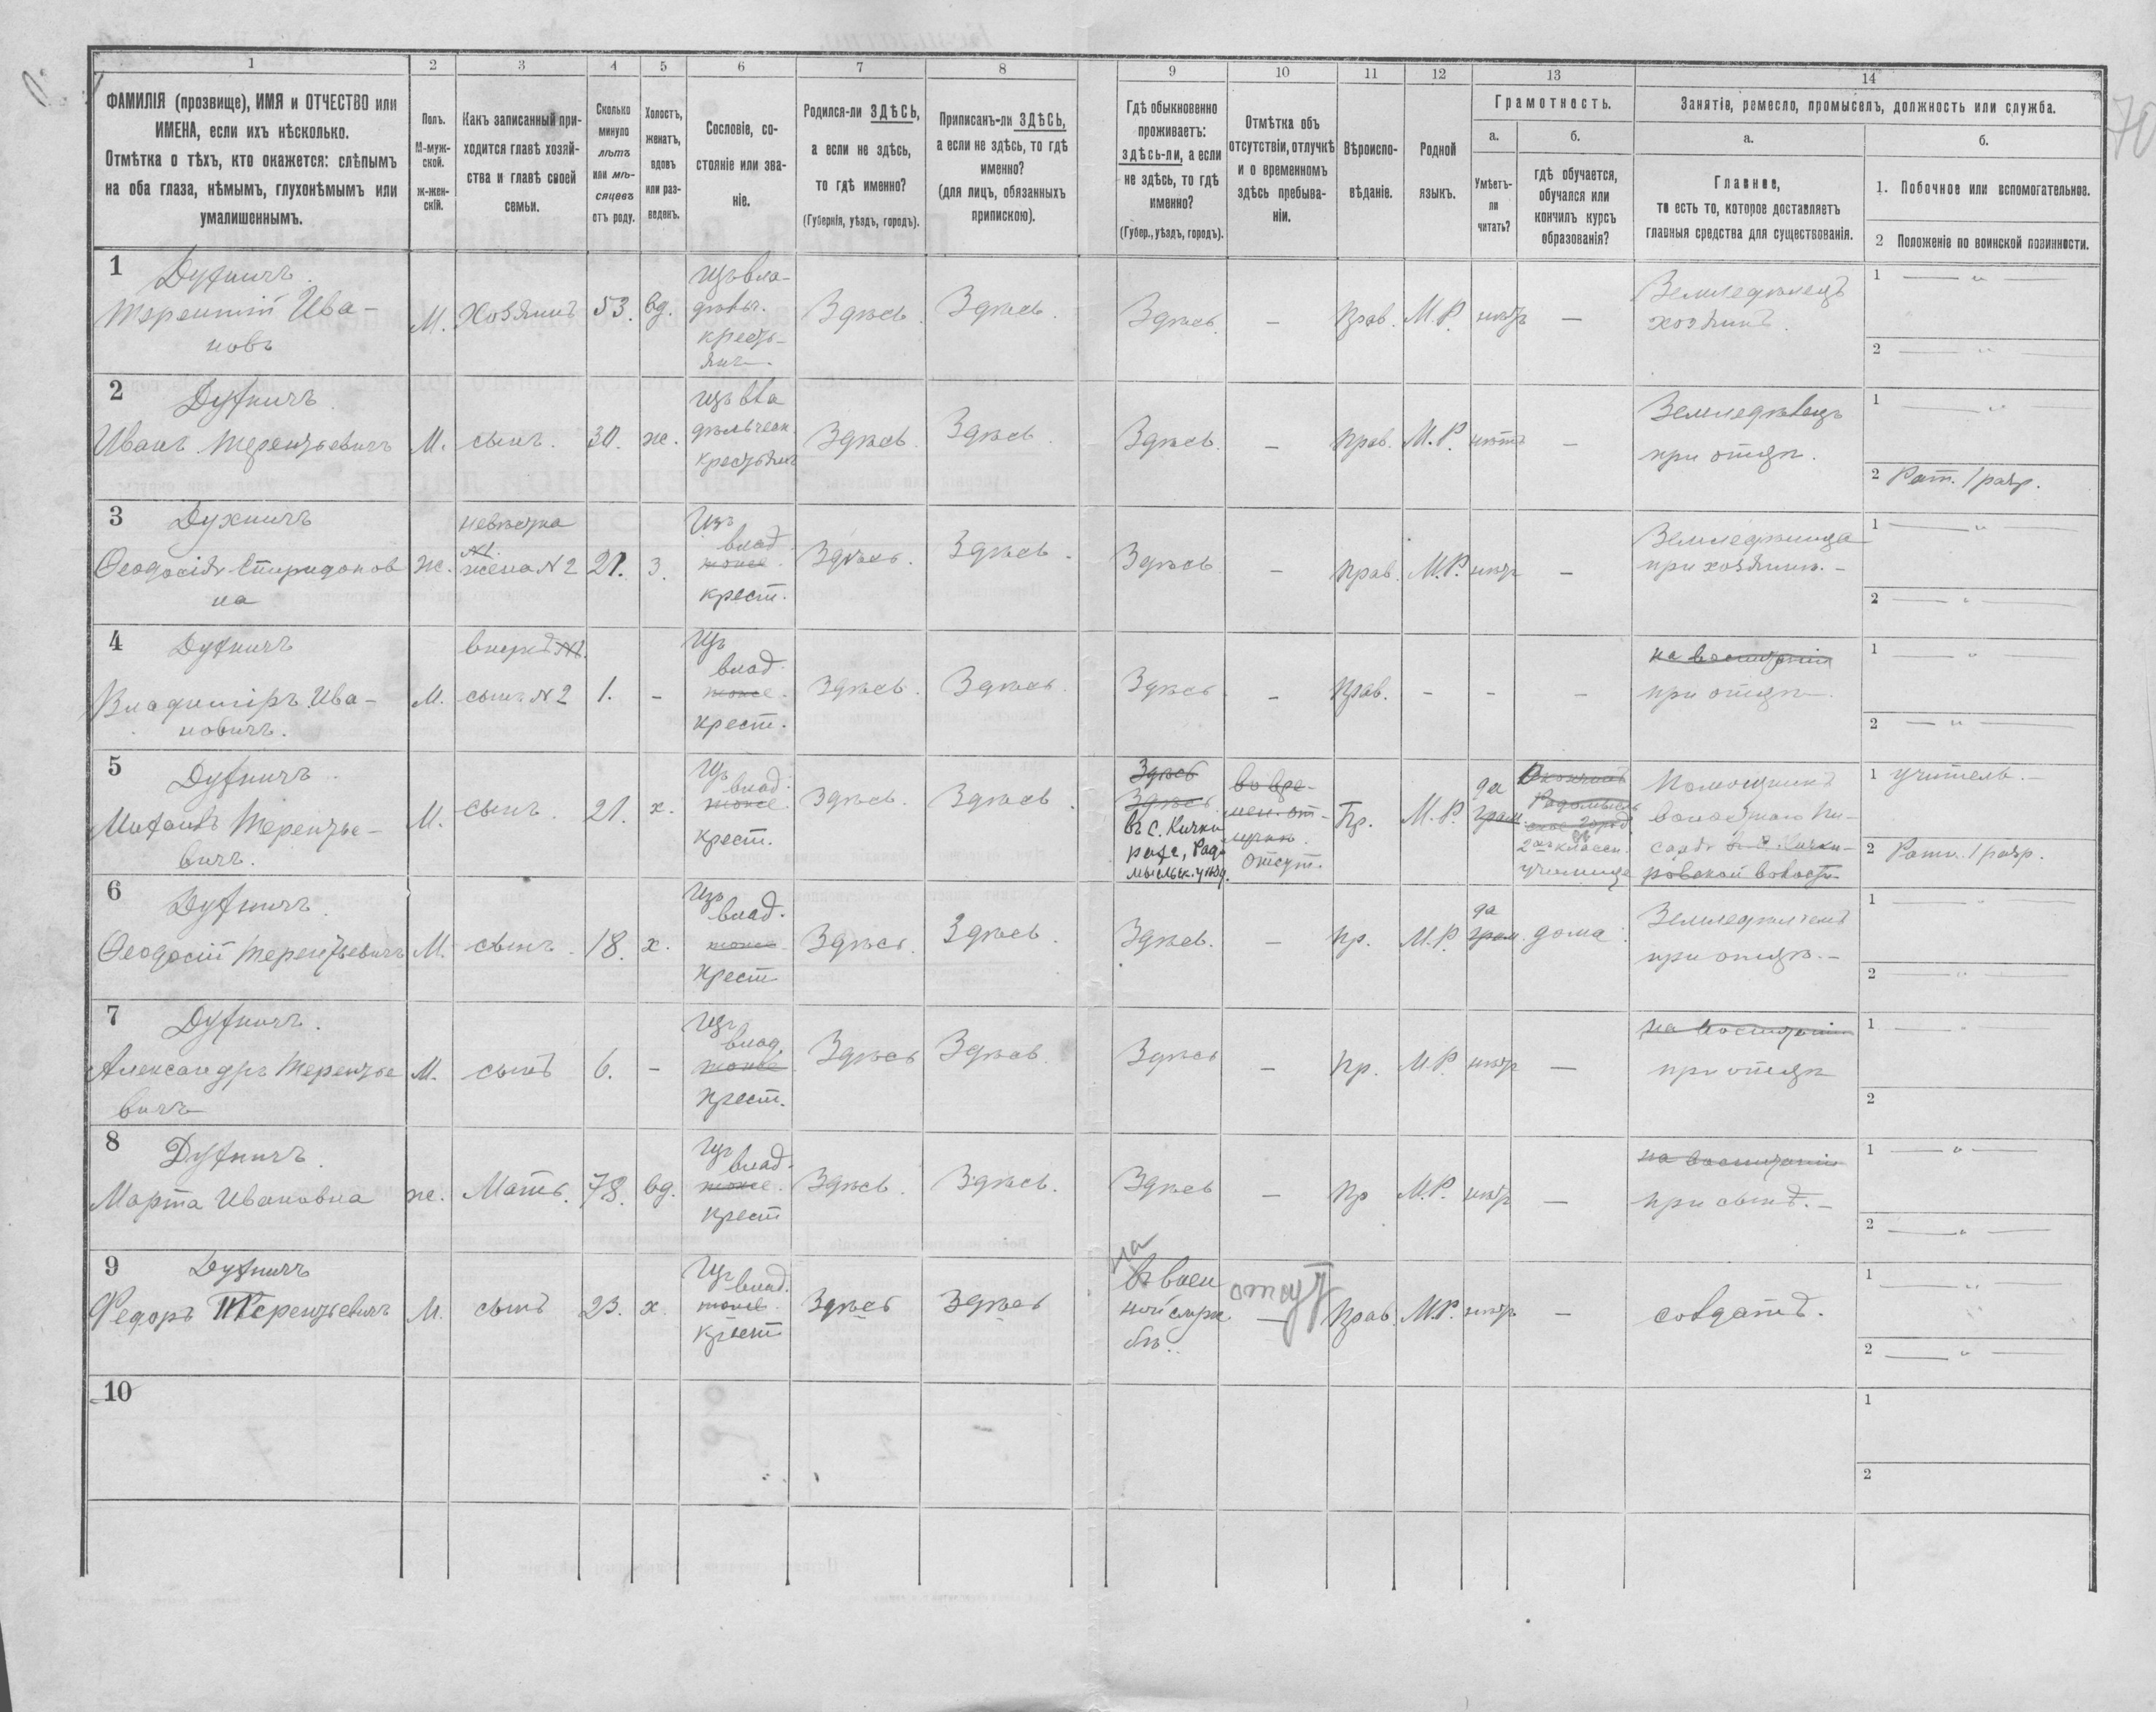 1 2 3 4 5 6 7 8 9 10 11 12 13 14
ФАМИЛІЯ (прозвище), ИМЯ и ОТЧЕСТВО или
ИМЕНА, если ихъ нѣсколько.
Отмѣтка о тѣхъ, кто окажется: слѣпымъ
на оба глаза, нѣмымъ, глухонѣмымъ или
умалишеннымъ.
Полъ.
М-муж-
ской.
Ж-жен-
скій.
Какъ записанный при-
ходится главѣ хозяй-
ства и главѣ своей
семьи.
Сколько
минуло
лѣтъ
или мѣ-
сяцевъ
отъ роду.
Холостъ,
женатъ,
вдовъ
или раз-
веденъ.
Сословіе, со-
стояніе или зва-
ніе.
Родился-ли ЗДѢСЬ,
а если не здѣсь,
то гдѣ именно?
(Губернія, уѣздъ, городъ).
Приписанъ-ли ЗДѢСЬ,
а если не здѣсь, то гдѣ
именно?
(для лицъ, обязанныхъ
припискою).
Гдѣ обыкновенно
проживаетъ:
здѣсь-ли, а если
не здѣсь, то гдѣ
именно?
(Губер., уѣздъ, городъ).
Отмѣтка объ
отсутствіи, отлучкѣ
и о временномъ
здѣсь пребыва-
ніи.
Вѣроиспо-
вѣданіе.
Родной
языкъ.
Грамотность.
а. б.
Умѣетъ-
ли
читать?
гдѣ обучается,
обучался или
кончилъ курсъ
образованія?
Занятіе, ремесло, промыселъ, должность или служба.
а. б.
Главное,
то есть то, которое доставляетъ
главныя средства для существованія.
1. Побочное или вспомогательное.
2 Положеніе по воинской повинности.
70
1 Духничъ
Терентій Ива-
новъ
М. Хозяинъ 53. вд.
Изъ вла-
дѣльч.
кресть-
янъ
Здѣсь. Здѣсь. Здѣсь. — Прав. М.Р. нѣтъ —
Земледѣлецъ
хозяинъ.
1 — " —
2 — " —
2 Духничъ
Иванъ Терентьевичъ
М. сынъ. 30. ж.
Изъ вла
дѣльческ.
крестьянъ
Здѣсь. Здѣсь. Здѣсь. — Прав. М.Р. нѣтъ —
Земледѣлецъ
при отцѣ.
1 — " —
2 Рат. 1 разр.
3 Духничъ
Ѳеодосія Спиридонов
на
Ж.
невѣстка
№1.
жена №2
21. З.
Изъ
влад.
тоже
крест.
Здѣсь. Здѣсь. Здѣсь — Прав. М.Р. нѣтъ —
Земледѣлица
при хозяинѣ.—
1 — " —
2 — " —
4 Духничъ
Владиміръ Ива-
новичъ.
М.
внукъ №1.
сынъ №2
1. -
Изъ
влад.
тоже.
крест.
Здѣсь. Здѣсь. Здѣсь — Прав. - - -
на воспитаніи
при отцѣ.
1 — " —
2 — " —
5 Духничъ
Михаилъ Терентье-
вичъ.
М. сынъ. 21. х.
Изъ
влад.
тоже
крест.
Здѣсь. Здѣсь
Здѣсь
Здѣсь.
въ с. Кички
рахъ, Радо
мысльск. уѣзд.
во вре-
мен. от-
лучкѣ.
отсут.
Пр. М.Р.
да
грам.
Окончилъ
Радомысль
ское город
2хъ классн.
училище
Помощникъ
волостного пи-
саря въ с. Кички-
ровской волости
1 учитель.—
2 Ратн. 1 разр.
6 Духничъ
Ѳеодосій Терентьевичъ
М. сынъ. 18. х.
Изъ
влад.
тоже
крест
Здѣсь. Здѣсь. Здѣсь. — Пр. М.Р.
да
грам. дома.
Земледѣлецъ
при отцѣ.—
1 — " —
2 — " —
7 Духничъ.
Александръ Терентье
вичъ
М. сынъ 6. -
Изъ
влад.
тоже
крест.
Здѣсь Здѣсь. Здѣсь — Пр. М.Р. нѣтъ —
на воспитаніи
при отцѣ
1 — "
2
8 Духничъ.
Марта Ивановна
ж. Мать. 78. вд.
Изъ
влад.
тоже.
крест
Здѣсь. Здѣсь. Здѣсь — Пр М.Р. нѣтъ —
на воспитаніи
при сынѣ.—
1 — " —
2 — " —
9 Духничъ
Федоръ Терентьевичъ
М. сынъ 23. х.
Изъ
влад.
тоже
крест
Здѣсь Здѣсь
на
въ воен
ной служ
бѣ..
отсут
— Прав. М.Р. нѣтъ —
солдатъ.
1 — " —
2 — " —
10
1
2